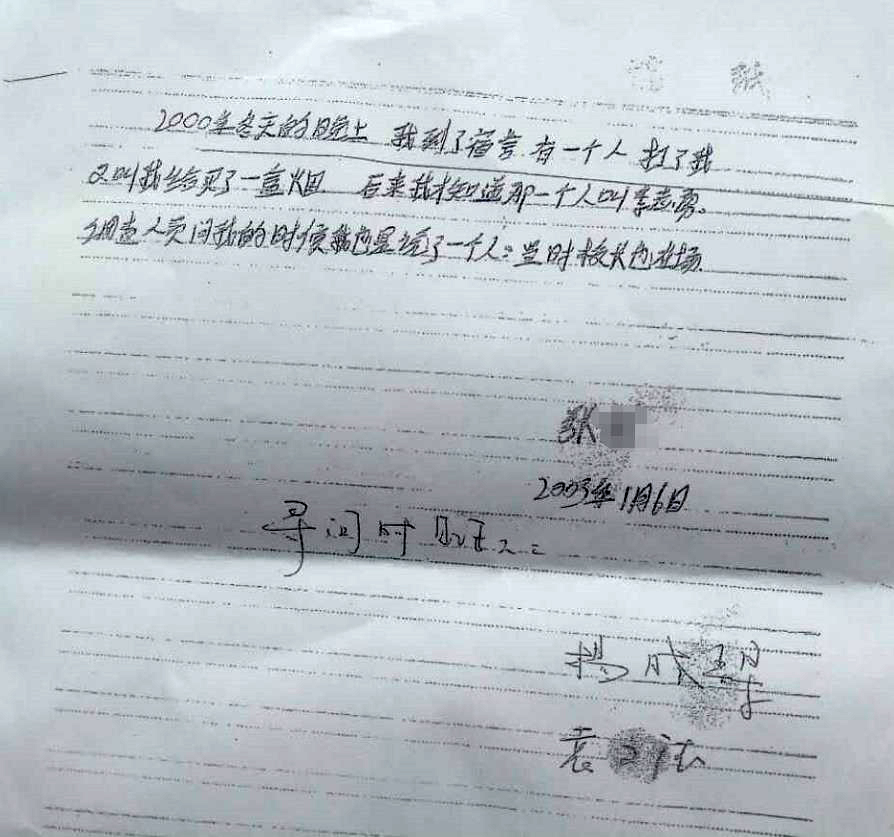 信 纸
2000年冬天的日晚上 我到了宿舍 有一个人 打了我
又叫我给买了一盒烟 后来我才知道那一个人叫李志勇。
调查人员问我的时候我也是说了一个人：当时校长也在场
张
2003年1月6日
寻问时
杨成
袁